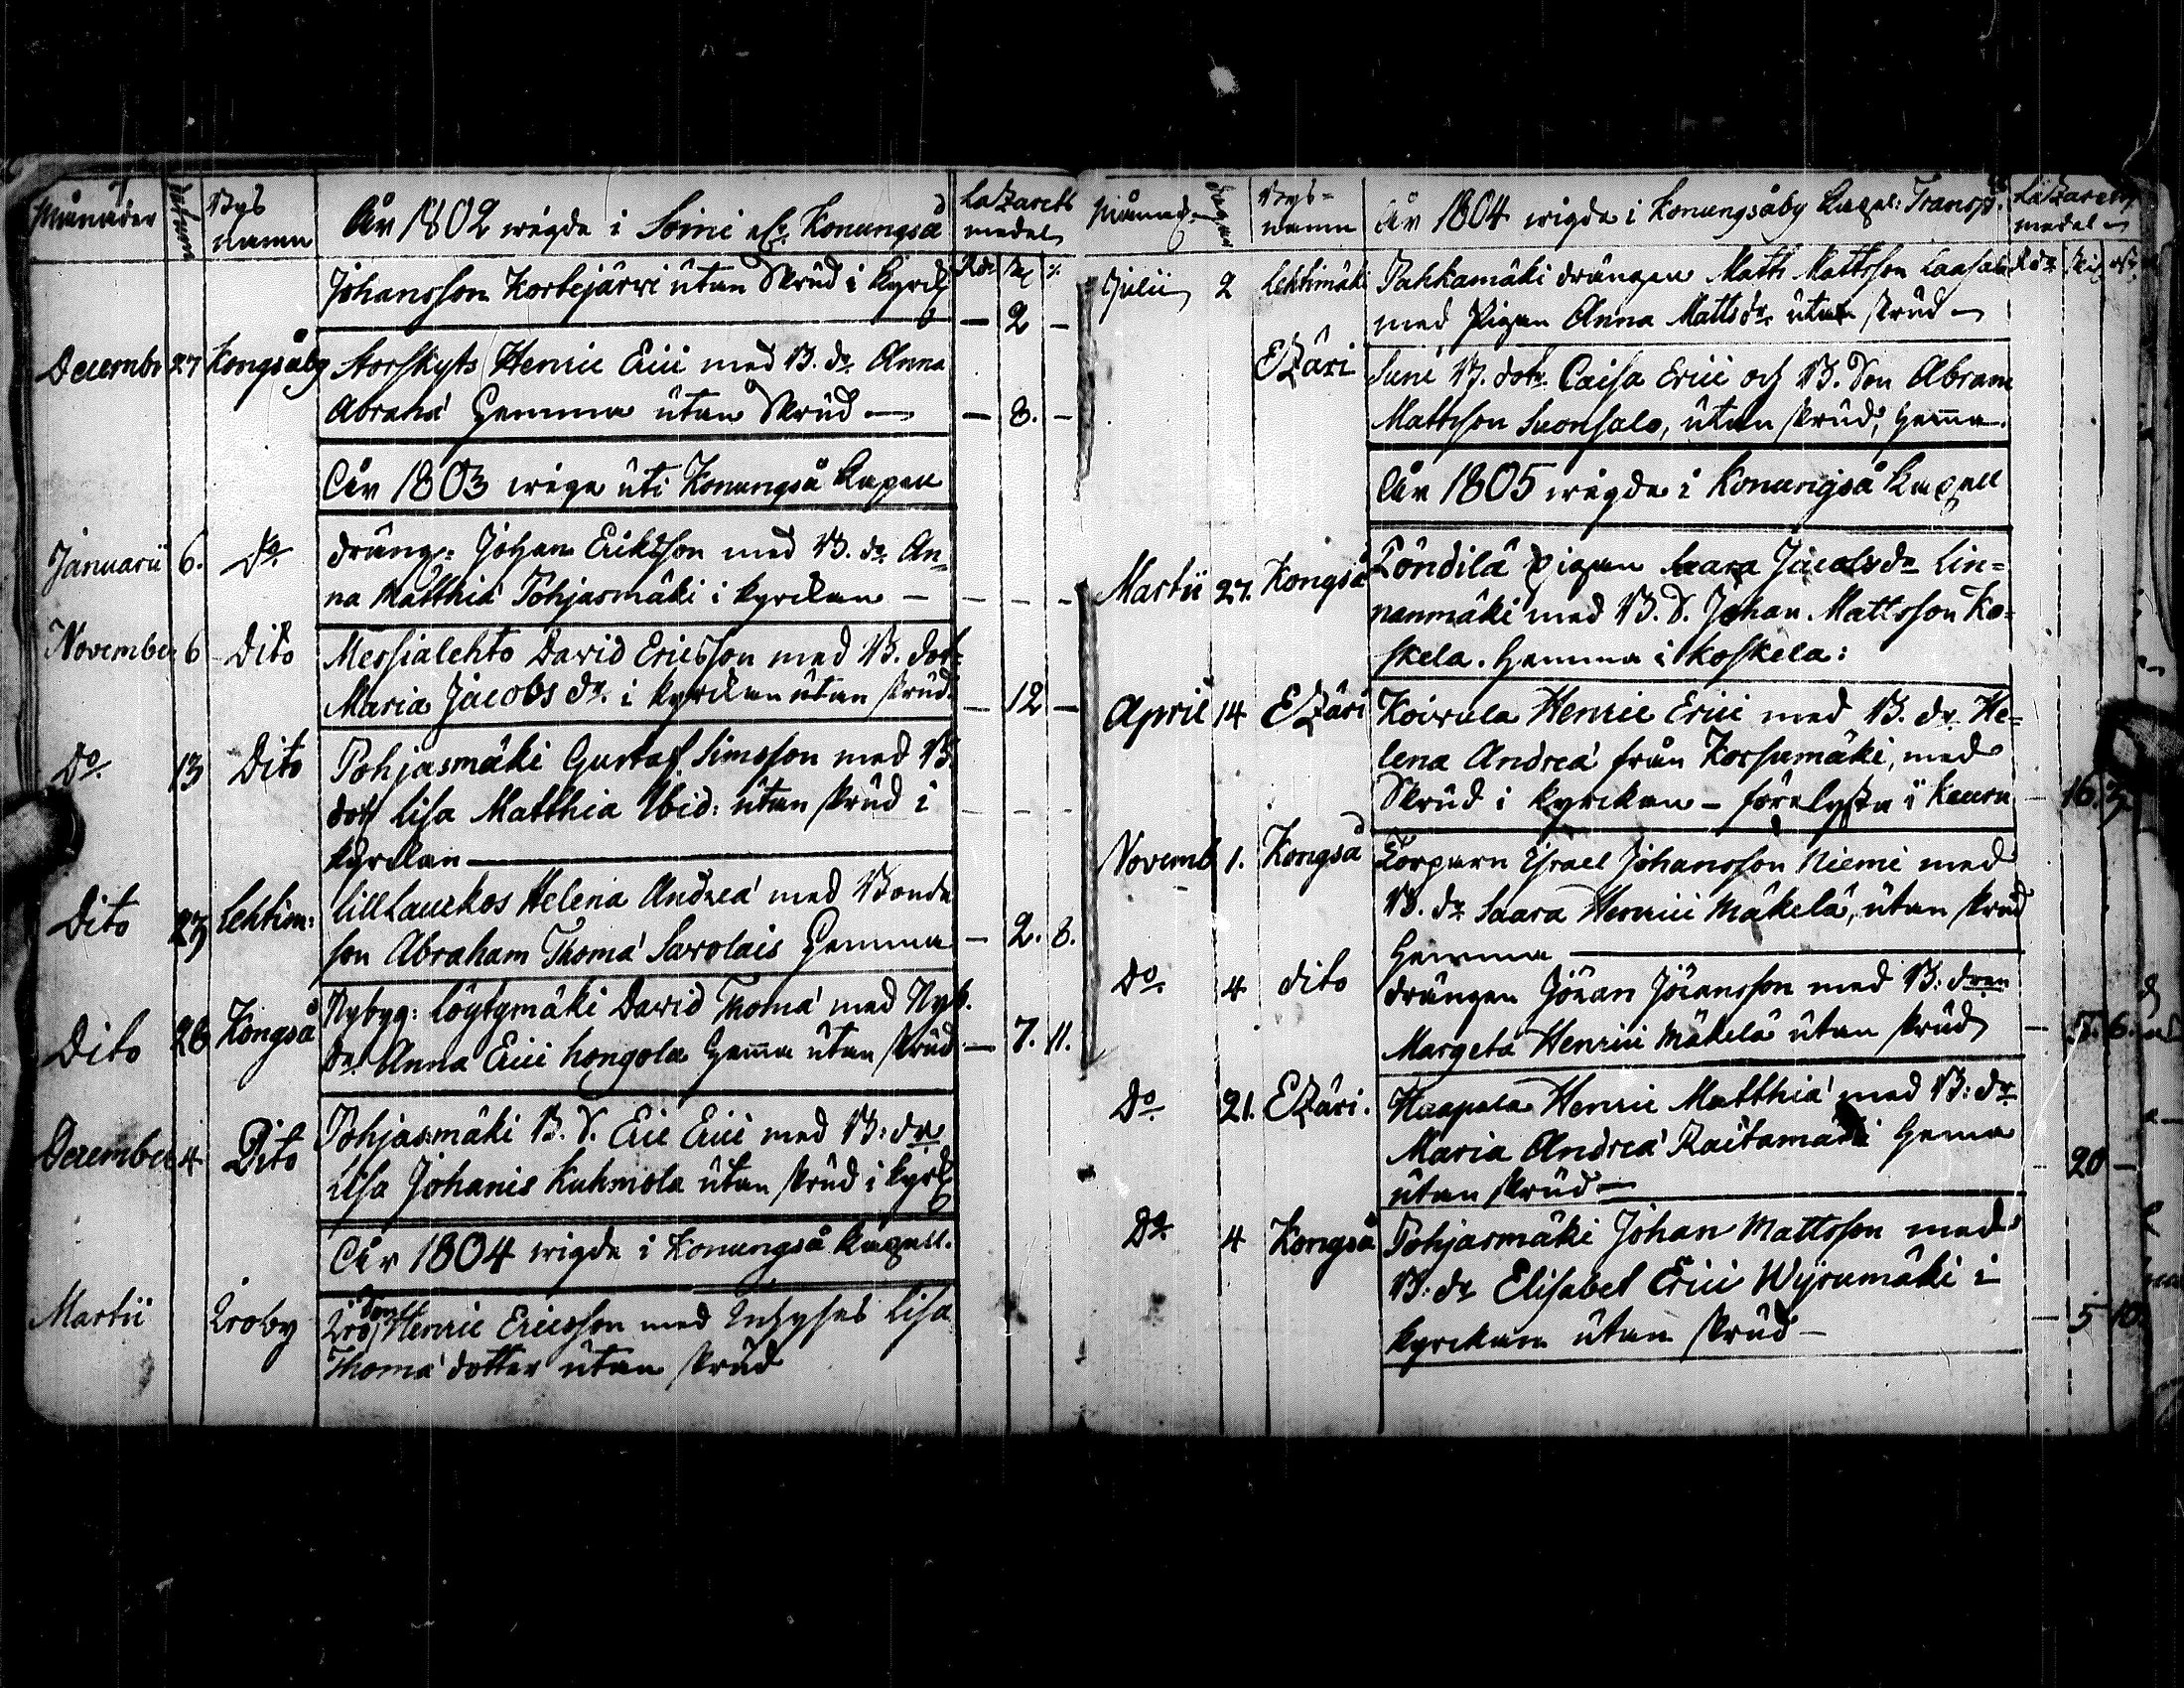 Månader Datum Bys namn År 1802 wigde i Soini elr. Konungså Lazaretts medel
Rdr sk
Johansson Kortejärwi utan Skrud i Kyrk — 2 —
Decembr 27 Kongsåby Storskyts Henric Erici med B. dr. Anna
Abrahä Hemma utan Skrud — — 8. —
År 1803 wige uti Konungså Kapell
Januarii 6. Do dräng: Johan Eriksson med B. dr An=
na Matthiä Pohjasmäki i kyrckan — — — —
November 6 Dito Messialehto David Ericsson med B. dot=
Maria Jacobs dr. i kyrckan utan skrud — 12 —
Do 13 Dito Pohjasmäki Gustaf Simsson med B.
dott Lisa Matthiä Ibid: utan skrud i — — —
kyrckan —
Dito 23 Lehtim: Lill Lauckos Helena Andreä med Bonde
son Abraham Thomä Sawolais Hemma — 2. 8.
Dito 26 Kongså Nybyg: Löytymäki David Thomä med Nyb.
dr. Anna Erici hongola Hemma utan skrud — 7. 11.
December 4 Dito Pohjasmäki B. S. Eric Erici med B: dr
Lisa Johanis Kuhmola utan skrud i kyrk
År 1804 wigde i Konungså Kapell.
Martii Iroby Iro son Henric Ericsson med Inhyses Lisa
Thomä dotter utan skrud
Månad Dagen Bys= namn År 1804 wigde i Konungsåby Kapel: Transp. Lazaretts medel
Julii 2 Lehtimäki Pahkamäki drängen Matth Mattsson Laasala Rdr sk rst.
med Pigan Anna Matts dr utan skrud —
Etzäri Suni B. dotr. Caisa Erici och B. Son Abram
Mattsson Suonsalo, utan skrud, Hemma.
År 1805 wigde i Konungså Kapell
Martii 27. Kongså Töndilä pigan Saara Jacobs dr Lin=
nanmäki med B. S. Johan Mattsson Ko=
skela. Hemma i Koskela:
April 14 Etzäri Koivula Henric Erici med B. dr. He=
lena Andreä från Korsumäki, med
Skrud i Kyrckan — förelyste i Keuru — 16. 3
Novemb 1. Kongså Torparn Israel Johansson Niemi med
B. dr Saara Henrici Mäkelä, utan skrud
Hemma —
Do 4 dito drängen Johan Johansson med B: dren
Margeta Henrici Mäkelä utan skrud — 6.
Do 21. Etzäri. Haapala Henric Matthiä med B: dr
Maria Andreä Hemma
utan skrud — — 20 —
Do 4 Kongså Pohjasmäki Johan Mattsson med
B: dr Elisabet Erici Wyrumäki i
kyrckan utan skrud — — 5 10.